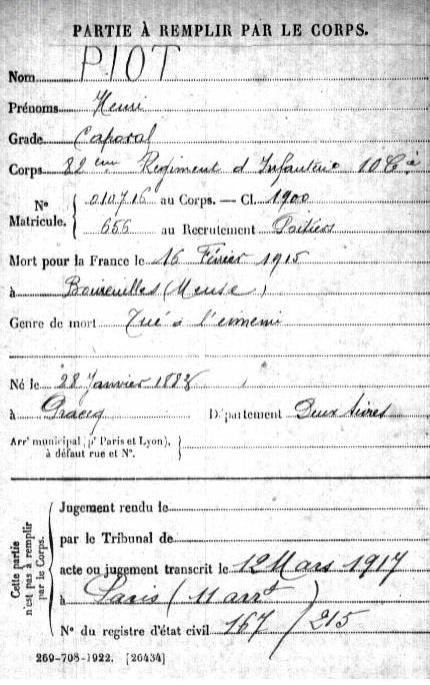 PARTIE À REMPLIR PAR LE CORPS.
Nom PIOT
Prénoms Henri
Grade Caporal
Corps 82 eme Régiment d'Infanterie 10 Cie
N° Matricule. { 010716 au Corps. — Cl. 1900
656 au Recrutement Poitiers
Mort pour la France le 16 Février 1915
à Boureuilles (Meuse)
Genre de mort Tué à l'ennemi
Né le 28 Janvier
à Département Deux Sèvres
Arrt municipal (pr Paris et Lyon),
à défaut rue et N°.
Cette partie n'est pas à remplir par le Corps.
Jugement rendu le
par le Tribunal de
acte ou jugement transcrit le 12 Mars 1917
à Paris (11 arrt)
N° du registre d'état civil 167/215
269-708-1922. [26434]